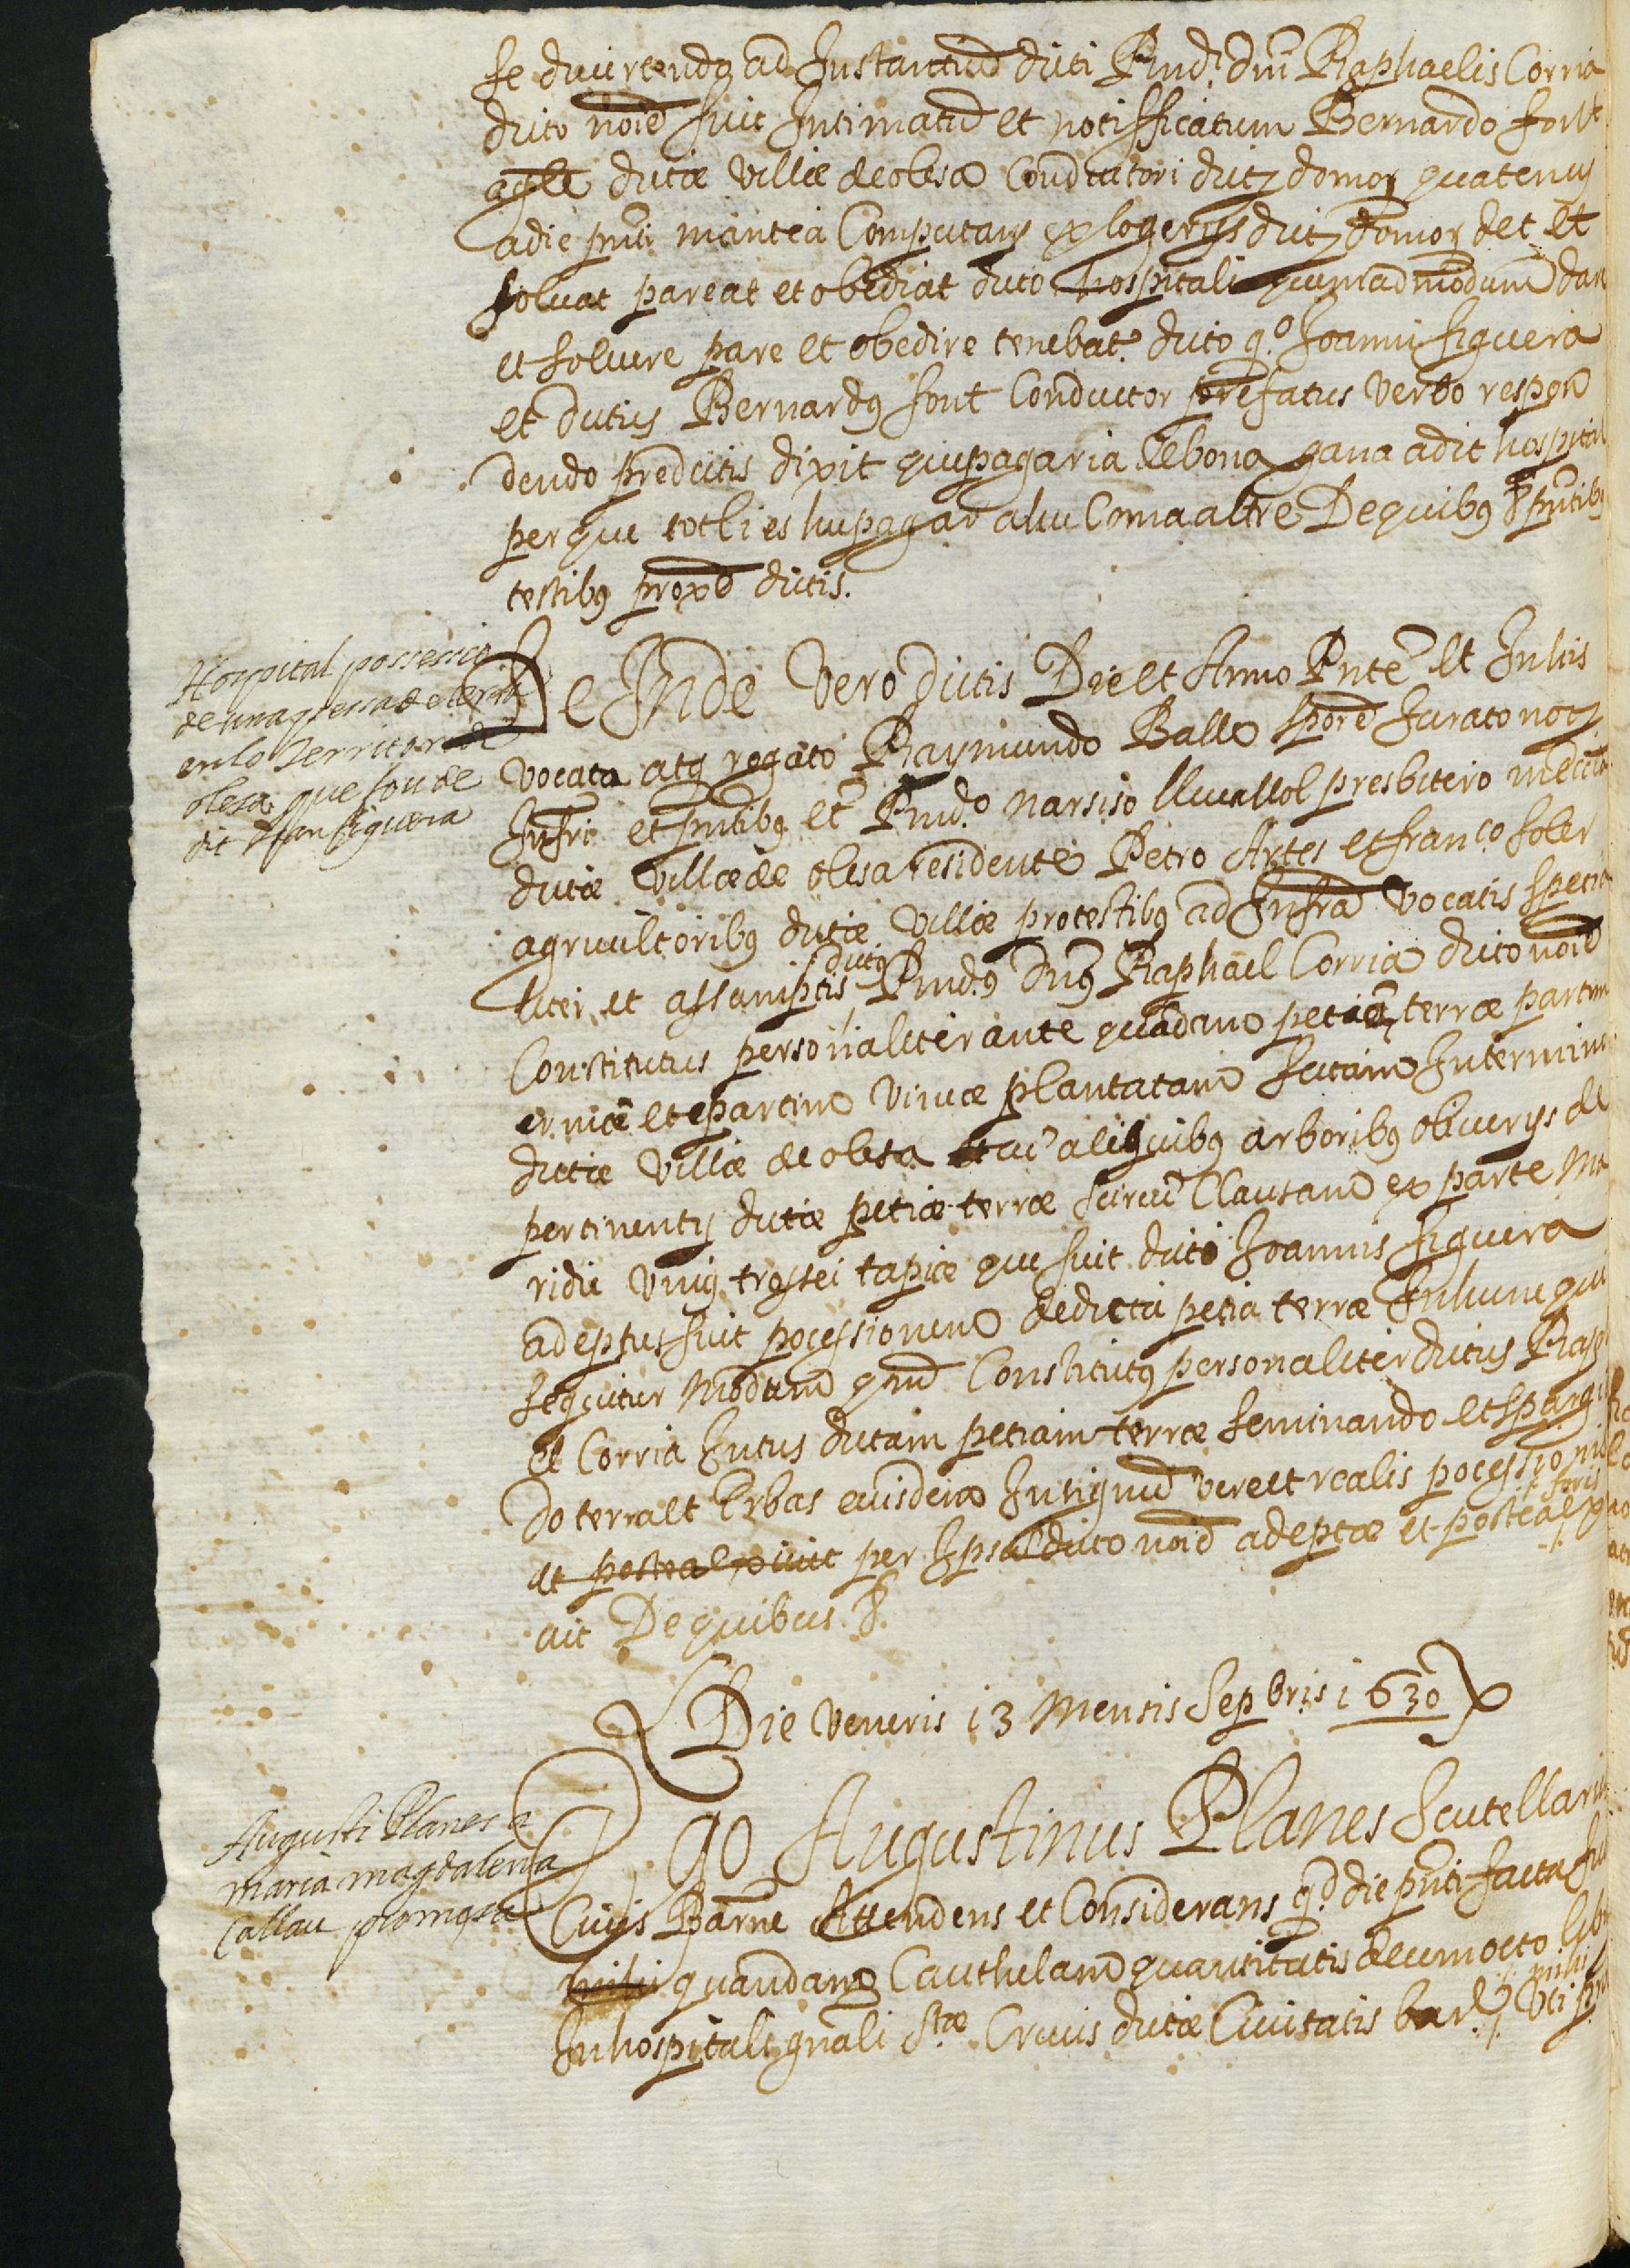 se divertendo ad Instantiā dicti Rndi dñi Raphaelis Corria
dicto noīe fuit Intimatū et notifficatum Bernardo font
agle dictæ Villæ de olesa Conductori dictȝ domoȝ quatenus
a die pñti in antea Computans ex logerijs dictȝ domoȝ det et
soluat pareat et obediat dicto hospitali quemadmodum dare
et soluere pare et obedire tenebat.r dicto q.o Joanni figuera
et dictus Bernardȝ font Conductor prefatus verbo respon
dendo predictis dixit que pagaria de bona gana a dit hospital
per que tot li es hu pagar a hu Com a altre De quibȝ & pñtibȝ
testibȝ proxē dictis.
Hospital possessio
de una pessa de terra
en lo Territori de
olesa que fou de
dit Joan figuera
De Inde Vero dictis Die et Anno Pnte et In his
vocato atȝ rogato Raymundo Ballo Jurato notȝ
Infri et pñtibȝ et Rnd.o Narsiso lluvallol presbitero
dictæ Villæ de olesa residente Petro Artes et fran.co soler
agricultoribȝ dictæ Villæ pro testibȝ ad Infra vocatis specia
liter et assumptis dictȝ Rndȝ Dñȝ Raphael Corria dicto noīe
Constitutus personaliter ante quādam petiā terræ partim
ermæ et partim vineæ plantatam sitam In termino
dictæ Villæ de olesa cū aliquibȝ arboribȝ oliuerijs de
pertinentijs dictæ petiæ terræ Circū Clausam ex parte Me
ridie vniȝ trossei tapiæ que fuit dicto Joannis figuera
adeptus fuit pocessionem de dicta petia terræ In hunc qui
sequitur modum qm̄ Constitutȝ personaliter dictus Rapha
el Corria Intus dictam petiam terræ seminando et spargen
do terra et Erbas eiusdem In signum vere et realis pocessionis
et postea exiuit per Ipsū dicto noīe adeptæ et postea ex foris
uit De quibus &.
Die Veneris 13 Mensis Sepbris 1630
Augusti Planes a
maria magdalena
Callau promesa
Ego Augustinus Planes Scutellarius
Ciuis Barne Attendens et Considerans q.d die pñti facta fuit
mihi quandam Cauthelam quantitatis decem octo libr
In hospitali gnāli S.tæ Crucis dictæ Ciuitatis bar.e mihi Vti